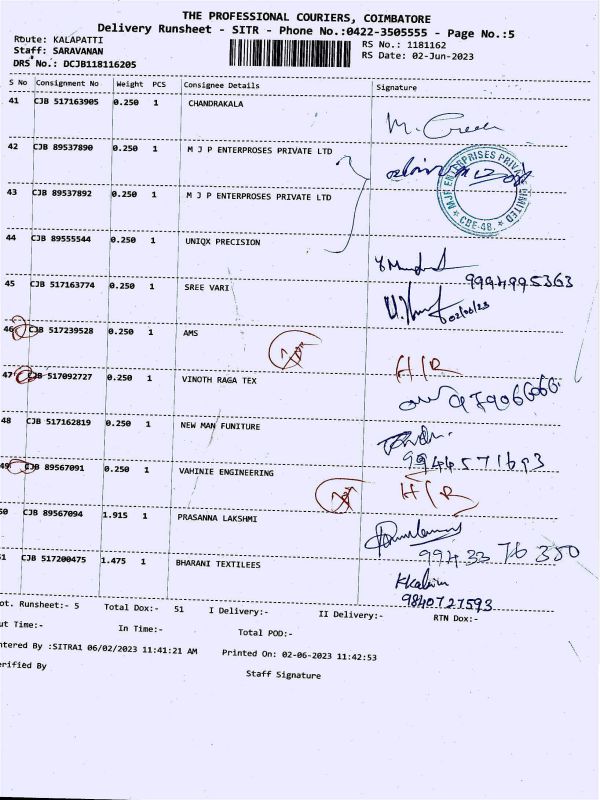 THE PROFESSIONAL COURIERS, COIMBATORE
Delivery Runsheet - SITR - Phone No.:0422-3505555 - Page No.:5
Route: KALAPATTI
RS No.: 1181162
Staff: SARAVANAN
RS Date: 02-Jun-2023
DRS No.: DCJB118116205
S No Consignment No Weight PCS Consignee Details Signature
41 CJB 517163905 0.250 1 CHANDRAKALA
42 CJB 89537890 0.250 1 M J P ENTERPROSES PRIVATE LTD
MJF ENTERPRISES PRIVATE LIMITED
CBE-48.
43 CJB 89537892 0.250 1 M J P ENTERPROSES PRIVATE LTD
44 CJB 89555544 0.250 1 UNIQX PRECISION
9994995363
45 CJB 517163774 0.250 1 SREE VARI
02/06/23
46 CJB 517239528 0.250 1 AMS
H/R
47 CJB 517092727 0.250 1 VINOTH RAGA TEX
48 CJB 517162819 0.250 1 NEW MAN FUNITURE
9944571693
49 CJB 89567091 0.250 1 VAHINIE ENGINEERING
H/R
50 CJB 89567094 1.915 1 PRASANNA LAKSHMI
99433 76350
51 CJB 517200475 1.475 1 BHARANI TEXTILEES
9840727593
ot. Runsheet:- 5 Total Dox:- 51 I Delivery:- II Delivery:- RTN Dox:-
ut Time:- In Time:- Total POD:-
ntered By :SITRA1 06/02/2023 11:41:21 AM Printed On: 02-06-2023 11:42:53
erified By
Staff Signature